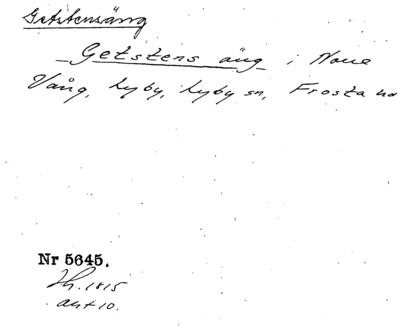 Getstensäng
Getstens äng i Norre
Vång, Lyby, Lyby sn, Frosta hd
Nr 5645.
Lh. 1815
akt 10.